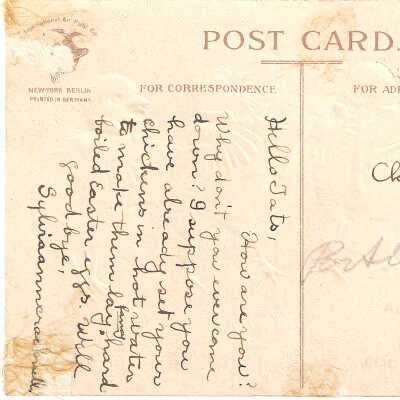 International Art Publ. Co.
NEW-YORK BERLIN
PRINTED IN GERMANY
POST CARD.
FOR CORRESPONDENCE
FOR ADD
Hello Tats,
How are you?
Why don't you ever come
down? I suppose you
have already set your
chickens in hot water
to make them lay hard
boiled Easter eggs. Will
good bye,